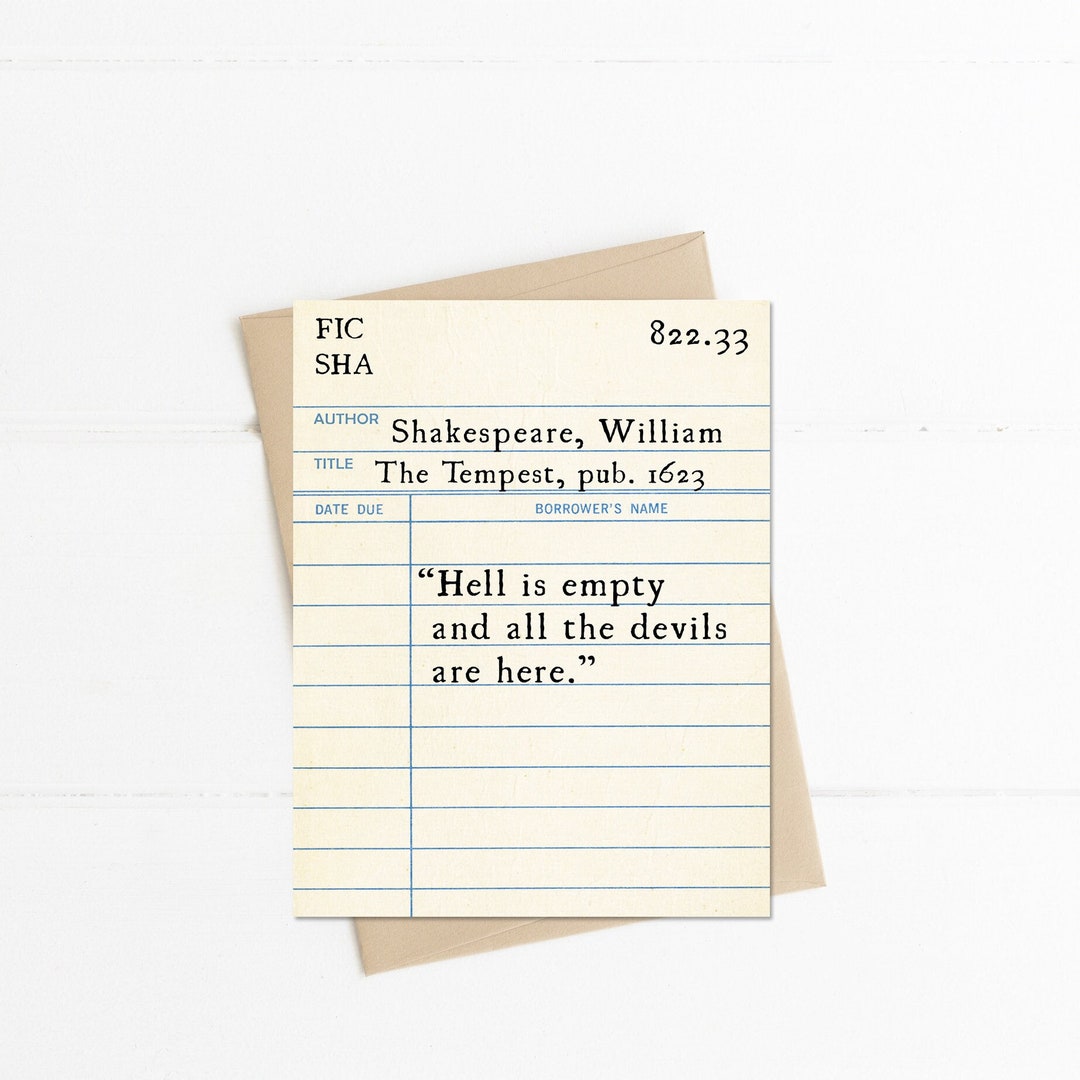 FIC
822.33
SHA
AUTHOR Shakespeare, William
TITLE The Tempest, pub. 1623
DATE DUE BORROWER'S NAME
“Hell is empty
and all the devils
are here.”